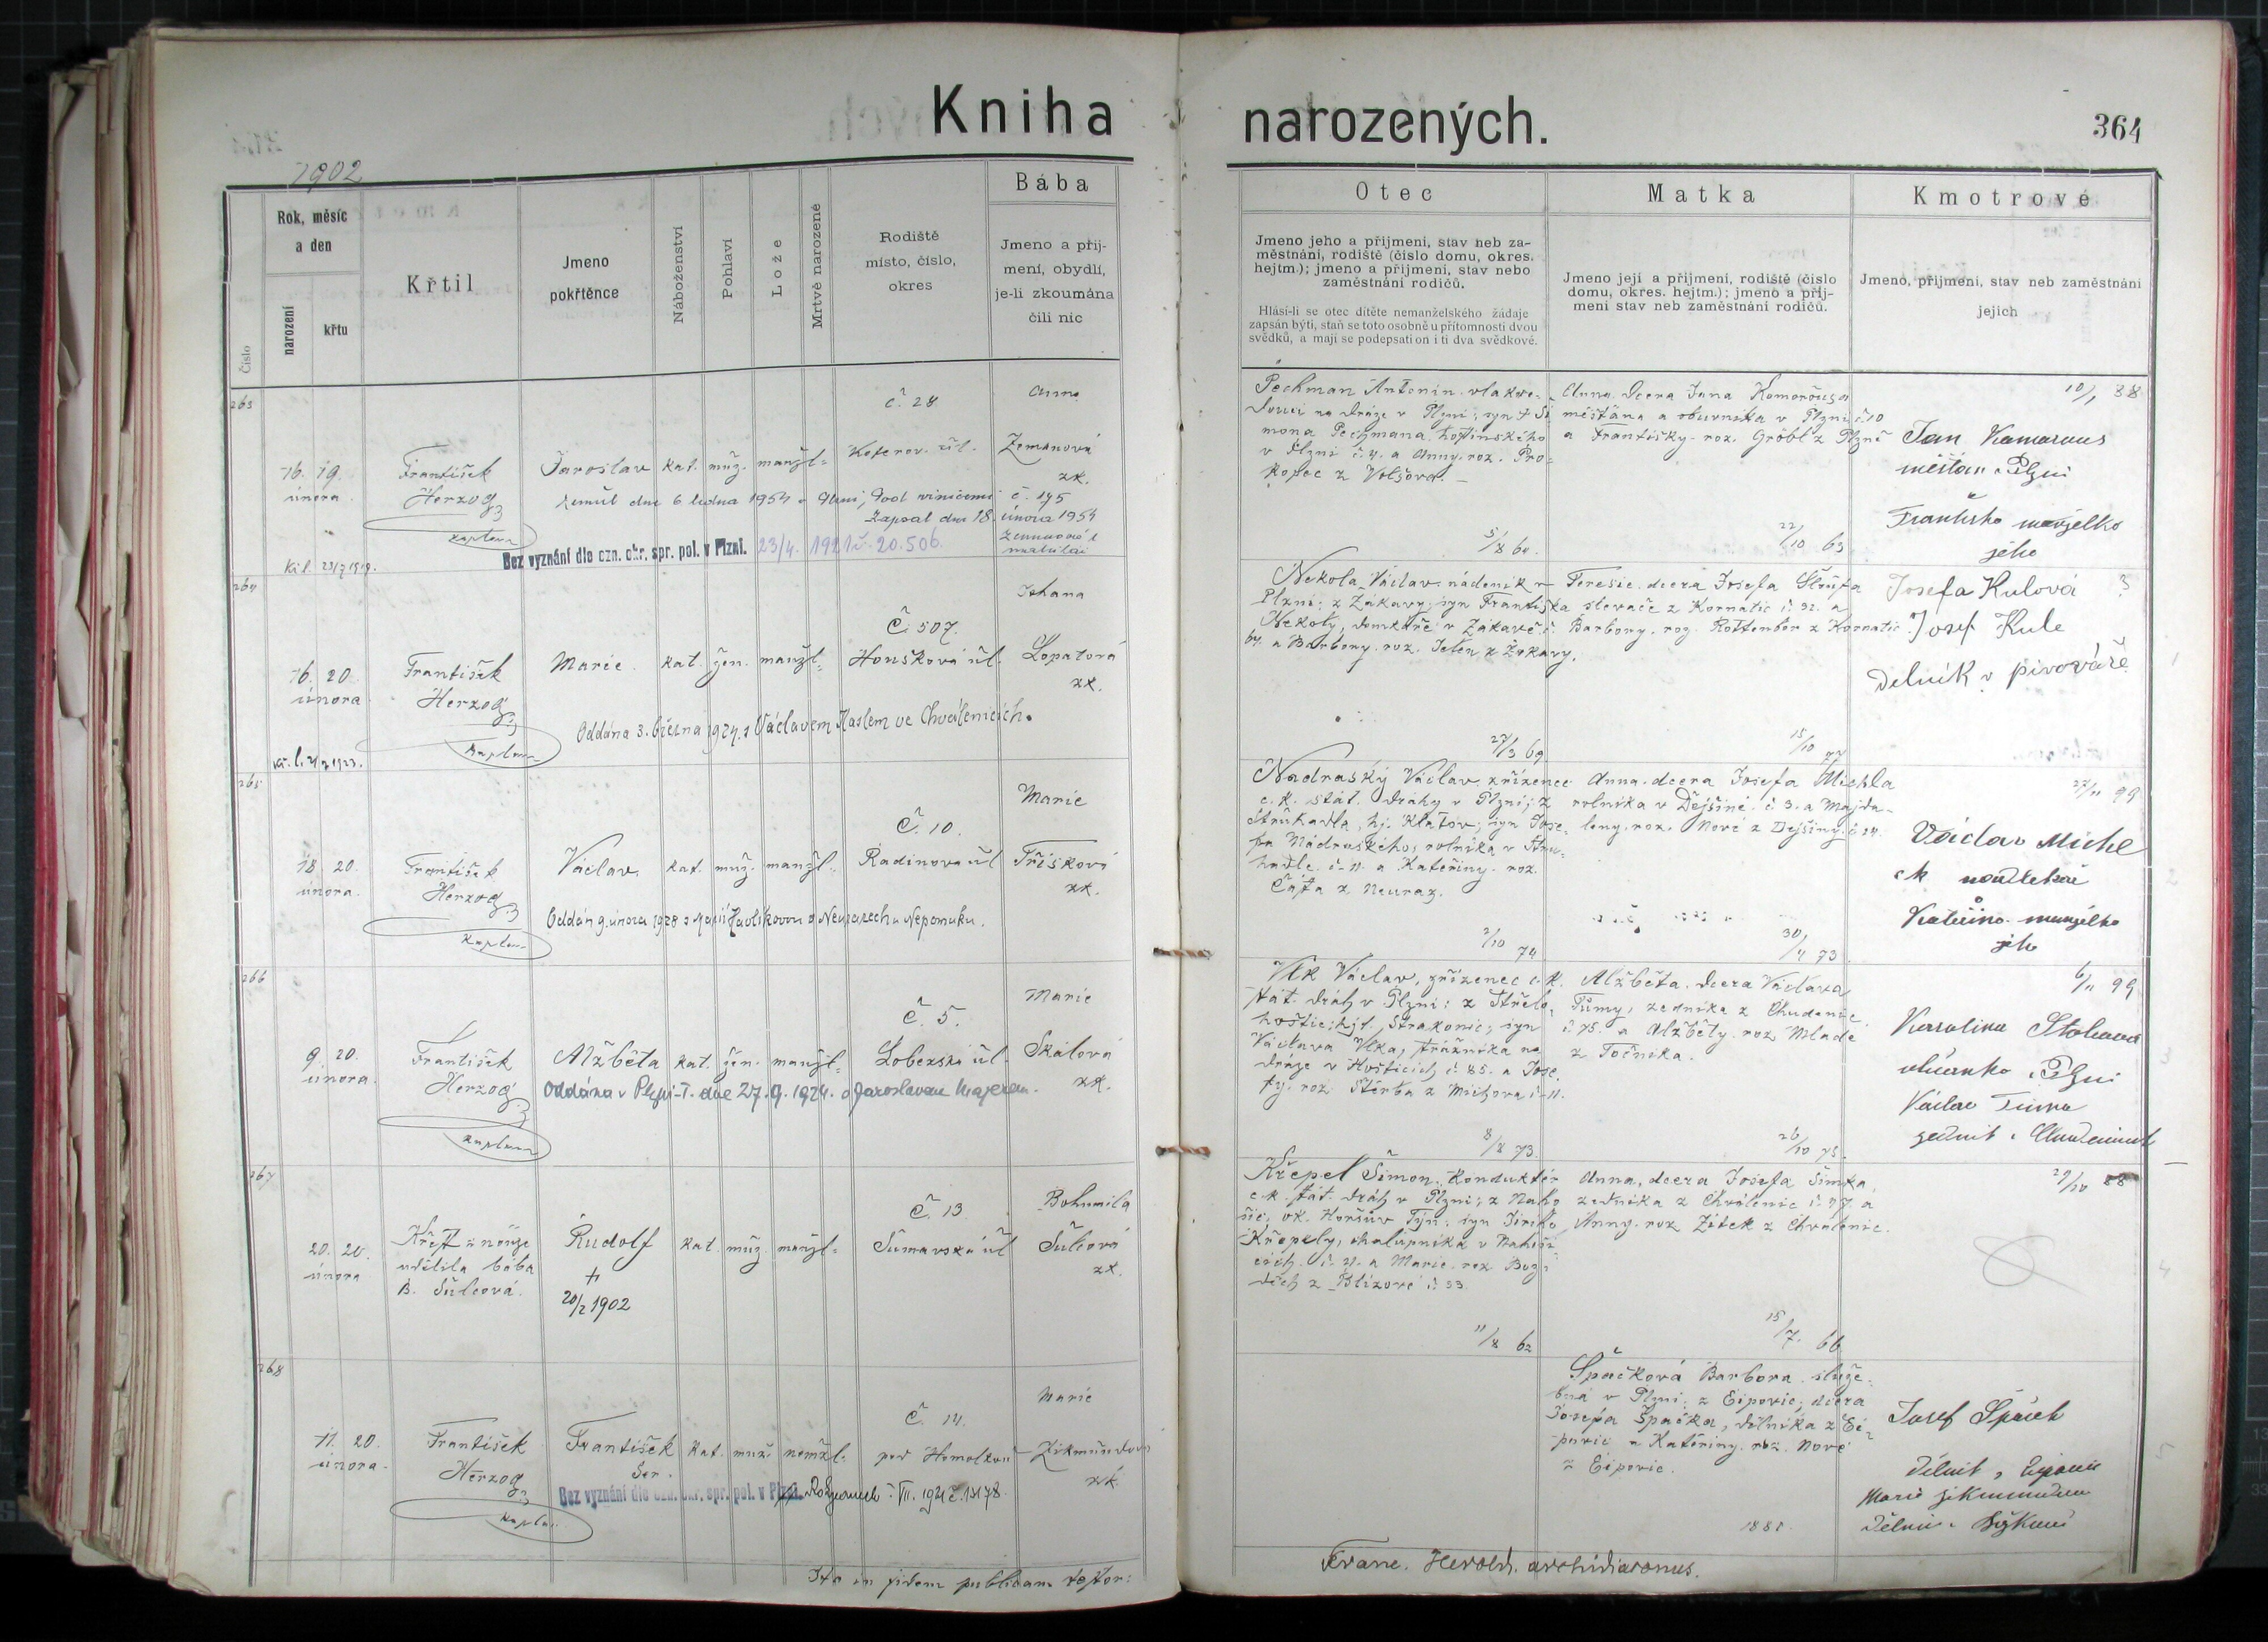 Kniha narozených.
364
1902
Číslo
Rok, měsíc
a den
narození
křtu
Křtil
Jmeno
pokřtěnce
Náboženství
Pohlaví
Lože
Mrtvě narozené
Rodiště
místo, číslo,
okres
Bába
Jmeno a příj-
mení, obydlí,
je-li zkoumána
čili nic
Otec
Jmeno jeho a příjmení, stav neb za-
městnání, rodiště (číslo domu, okres.
hejtm.); jmeno a příjmení, stav nebo
zaměstnání rodičů.
Hlásí-li se otec dítěte nemanželského žádaje
zapsán býti, staň se toto osobně u přítomnosti dvou
svědků, a mají se podepsati on i ti dva svědkové.
Matka
Jmeno její a příjmení, rodiště (číslo
domu, okres. hejtm.); jmeno a příj-
mení stav neb zaměstnání rodičů.
Kmotrové
Jmeno, příjmení, stav neb zaměstnání
jejich
263
16. 19.
února
František
Herzog
kaplan
Jaroslav kat. muž. manžl.
č. 28
Koterov. úl.
Anna
Zemanová
zk.
zemřel dne 6 ledna 1954 v Plzni, Pod vinicemi č. 195
Zapsal dne 18. února 1954
Bez vyznání dle ozn. okr. spr. pol. v Plzni. 23/4. 1921 č. 20.506.
Kř. l. 23/7 1919.
Pechman Antonín vlakve-
doucí na dráze v Plzni; syn † Ši
mona Pechmana, hostinského
v Plzni č. 4. a Anny, roz. Pro-
kopec z Volšova.
5/8 60.
Anna, dcera Jana
měšťana a obuvníka v Plzni č 10
a Františky. roz. Gröbl z Plzně
22/10 63
10/1 38
Jan
měšťan v Plzni
Františka manželka
jeho
264
16. 20.
února
František
Herzog
kaplan
Marie. kat. žen. manžl.
Č. 507.
Houškova úl.
Johana
Lopatová
zk.
Oddána 3. března 1924. s Václavem Haslem ve Chválenicích.
Nekola Václav, nádeník v
Plzni; z Žákavy; syn Františka
Nekoly, domkáře v Žákavě č.
64. a Barbory. roz. Teten z Žákavy.
27/3 69
Terezie. dcera Josefa
slevače z Kornatic č. 32. a
Barbory. roz. Rottenbor z Kornatic.
15/10 77
Josefa Kulová
Josef Kule
Dělník v pivováře
265
18. 20.
února.
František
Herzog
kaplan
Václav. kat. muž. manžl.
Č. 10.
Radinova úl
Marie
Tříšková
zk.
Oddán 9. února 1928 s Marií Havlíkovou v Neurazech u Nepomuku.
Nádraský Václav, zřízenec
c. k. stát. dráhy v Plzni; z
Strukadla, hj. Klatov; syn Jose-
fa Nádraského, rolníka v Stru-
hadle č. 11. a Kateřiny. roz.
Čajta z Neuraz.
2/10 74
Anna. dcera Josefa Michla
rolníka v Dejšině. č. 3. a Majda-
leny. roz. Nové z Dejšiny. č 24.
30/4 73.
27/11 99
Václav Michl
Kateřina manželka
jeho
266
9. 20.
února.
František
Herzog
kaplan
Alžběta kat. žen. manžl.
Č. 5.
Lobezská úl.
Marie
Skálová
zk.
Oddána v Plzni-I. dne 27. 9. 1924. s Jaroslavem Majerem.
Vlk Václav, zřízenec c. k.
stát. dráh v Plzni: z Střelo-
hoštic; hjt. Strakonic; syn
Václava Vlka, strážníka na
dráze v Hošticích č 85. a Jose-
fy. roz. Štěrba z Míchova č 11.
8/8 73.
Alžběta. dcera Václava
Tůmy, zedníka z Chudenic
č. 75. a Alžběty. roz. Mladé
z Točníka.
26/10 75.
6/11 99
Karolina
Plzni
Václav Tuma
267
20. 20.
února
Křest z nouze
udělila bába
B. Šulcová.
Rudolf kat. muž. manžl.
†
20/2 1902
Č. 13
Šumavská úl
Bohumila
Šulcová
zk.
Křepel Šimon, konduktér
c. k. stát. dráh v Plzni; z Naho
šic; ok. Horšův Týn: syn Jiřího
Křepely, chalupníka v Nahoši
cích. č. 21. a Marie. roz. Boz
děch z Blížové č. 33.
11/8 62
Anna, dcera Josefa Šimka,
zedníka z Chválenic č. 97. a
Anny. roz Žítek z Chválenic.
15/7. 66
29/10 88
268
11. 20.
února.
František
Herzog
kaplan
František kat. muž. nemžl.
Ser.
Č. 14.
pod Homolkou
Marie
Zikmundová
zk.
Bez vyznání dle ozn. okr. spr. pol. v Plzni.
Špačková Barbora služe-
bná v Plzni; z Eipovic; dcera
Josefa Špačka, dělníka z Ei-
povic a Kateřiny. roz. Nové
z Eipovic.
1881.
Josef Špaček
dělník v Eipovic
Marie Zikmundova
Ita in fidem publicam testor:
Franc. Herold. archidiaconus.